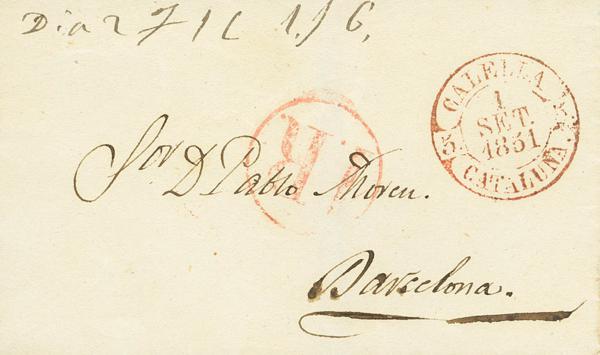 Dia 2
CALELLA
1
SET.
1851
CATALUÑA.
Sor D Pablo Moreu.
Barcelona.